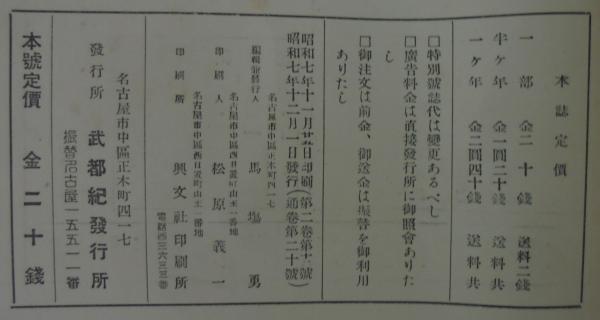 本誌定價
一部　金二十錢　送料二錢
半ケ年　金一圓二十錢　送料共
一ケ年　金二圓四十錢　送料共
□特別號誌代は變更あるべし
□廣告料金は直接發行所に御照會ありた
し
□御注文は前金、御送金は振替を御利用
ありたし
昭和七年十一月廿五日印刷(第二卷第十二號)
昭和七年十二月一日發行(通卷第二十號)
名古屋市中區正木町四ー一七
編輯兼發行人　馬場勇
名古屋市中區西日置町山王一番地
印刷人　松原義一
名古屋市中區西日置町山王一番地
印刷所　興文社印刷所
電話西三六三三番
名古屋市中區正木町四ー一七
發行所　武都紀發行所
振替名古屋一五五一一番
本號定價　金二十錢